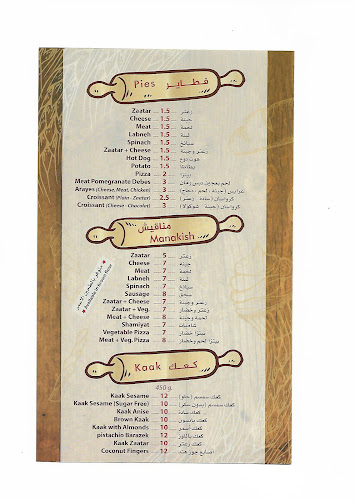 Pies فطاير
Zaatar ..... 1.5 ..... زعتر
Cheese ..... 1.5 ..... جبنة
Meat ..... 1.5 ..... لحمة
Labneh ..... 1.5 ..... لبنة
Spinach ..... 1.5 ..... سبانخ
Zaatar + Cheese ..... 1.5 ..... زعتر وجبنة
Hot Dog ..... 1.5 ..... هوت دوج
Potato ..... 1.5 ..... بطاطا
Pizza ..... 2 ..... بيتزا
Meat Pomegranate Debes ..... 3 ..... لحم بعجين دبس رمان
Arayes (Cheese, Meat, Chicken) ..... 3 ..... عرايس (جبنة ، لحم ، دجاج)
Croissant (Plain - Zaatar) ..... 2.5 ..... كرواسان (سادة - زعتر)
Croissant (Cheese - Chocolet) ..... 3 ..... كرواسان (جبنة - شوكولا)
مناقيش
Manakish
Zaatar ..... 5 ..... زعتر
Cheese ..... 7 ..... جبنة
Meat ..... 7 ..... لحمة
Labneh ..... 7 ..... لبنة
Spinach ..... 7 ..... سبانخ
Sausage ..... 8 ..... سجق
Zaatar + Cheese ..... 7 ..... زعتر وجبنة
Zaatar + Veg. ..... 7 ..... زعتر وخضار
Meat + Cheese ..... 8 ..... لحمة وجبنة
Shamiyat ..... 7 ..... شاميات
Vegetable Pizza ..... 7 ..... بيتزا خضار
Meat + Veg. Pizza ..... 8 ..... بيتزا لحم وخضار
Available in Brown Flour
Kaak كعك
450 g.
Kaak Sesame ..... 12 ..... كعك سمسم (حلو)
Kaak Sesame (Sugar Free) ..... 10 ..... كعك سمسم (بدون سكر)
Kaak Anise ..... 10
Brown Kaak ..... 10
Kaak with Almonds ..... 10 ..... كعك باللوز
pistachio Barazek ..... 12
Kaak Zaatar ..... 10 ..... كعك زعتر
Coconut Fingers ..... 12 ..... اصابع جوز هند